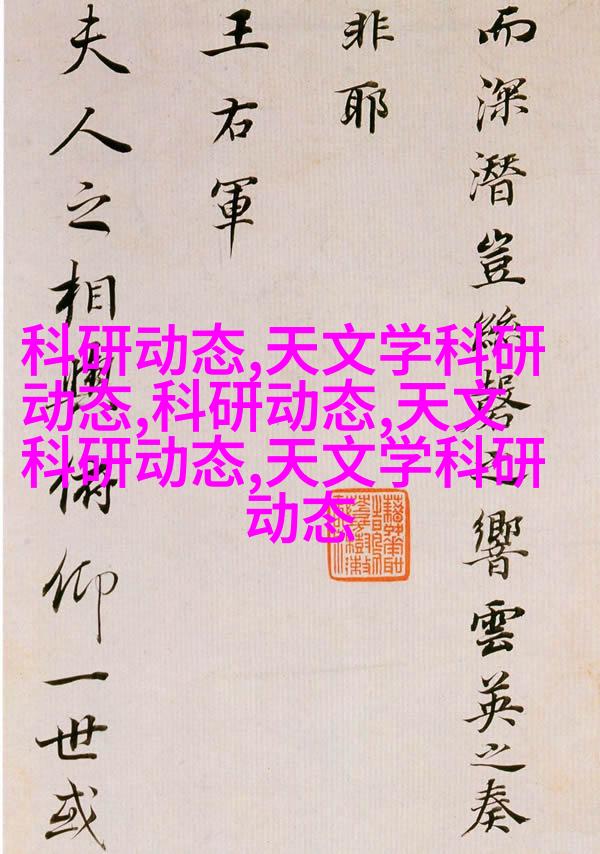 而深潛豈絲磬之響雲英之奏
非耶
王右軍
夫人之相與俯仰一世或
科研动态,天文学科研
动态,科研动态,天文
科研动态,天文学科研
动态